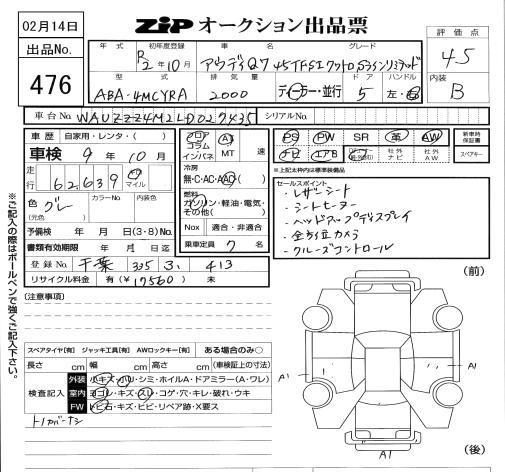 02月14日
ZIP オークション出品票
評価点
出品No.
476
4.5
年式 初年度登録 車名 グレード
R2年10月 アウディQ7 45TFSIクワトロ S3シリミテッド
型式 排気量 ドア ハンドル
ABA-4MCYRA 2000 ディーラー・並行 5 左・右
内装
B
車台No. WAUZZZ4M2LD027435 シリアルNo.
車歴 自家用・レンタ・( )
車検 9年10月
走行 62,639 km マイル
色 グレー
(元色)
カラーNo. 内装色
予備検 年 月 日(3・8)No.
書類有効期限 年 月 日迄
登録No. 千葉 335 す 413
リサイクル料金 有(¥17560) 未
フロア コラム インパネ
AT MT 速
冷房
無・C・AC・AAC
燃料
ガソリン・軽油・電気・その他( )
Nox 適合・非適合
乗車定員 7名
PS PW SR 革 AW
ナビ エアB 社外ナビ 社外AW
新車時保証書
スペアキー
※上記太枠内は標準装備品
セールスポイント
・レザーシート
・シートヒーター
・ヘッドアップディスプレイ
・全方位カメラ
・クルーズコントロール
(注意事項)
(前)
スペアタイヤ[有] ジャッキ工具[有] AWロックキー[有] ある場合のみ○
長さ cm 幅 cm 高さ cm (車検証上の寸法)
検査記入
外装 小キズ・小凹・シミ・ホイルA・ドアミラー(A・ワレ)
室内 ヨゴレ・キズ・スレ・コゲ・穴・キレ・破れ・ウキ
FW トビ石・キズ・ヒビ・リペア跡・X要ス
トノカバーナシ
A1
A1
A1
(後)
※ご記入の際はボールペンで強くご記入下さい。